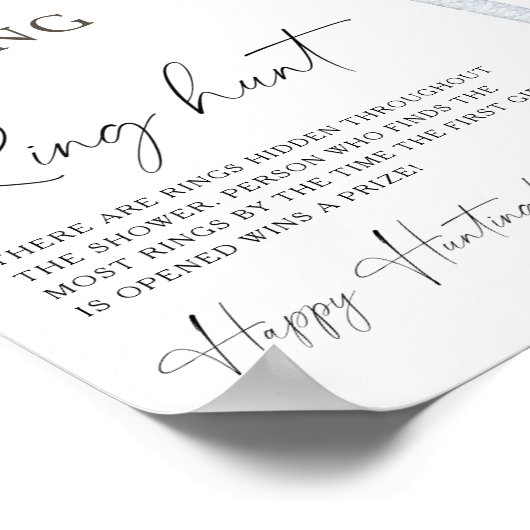 NG
Ring hunt
THERE ARE RINGS HIDDEN THROUGHOUT
THE SHOWER. PERSON WHO FINDS THE
MOST RINGS BY THE TIME THE FIRST GI
IS OPENED WINS A PRIZE!
Happy Hunting!